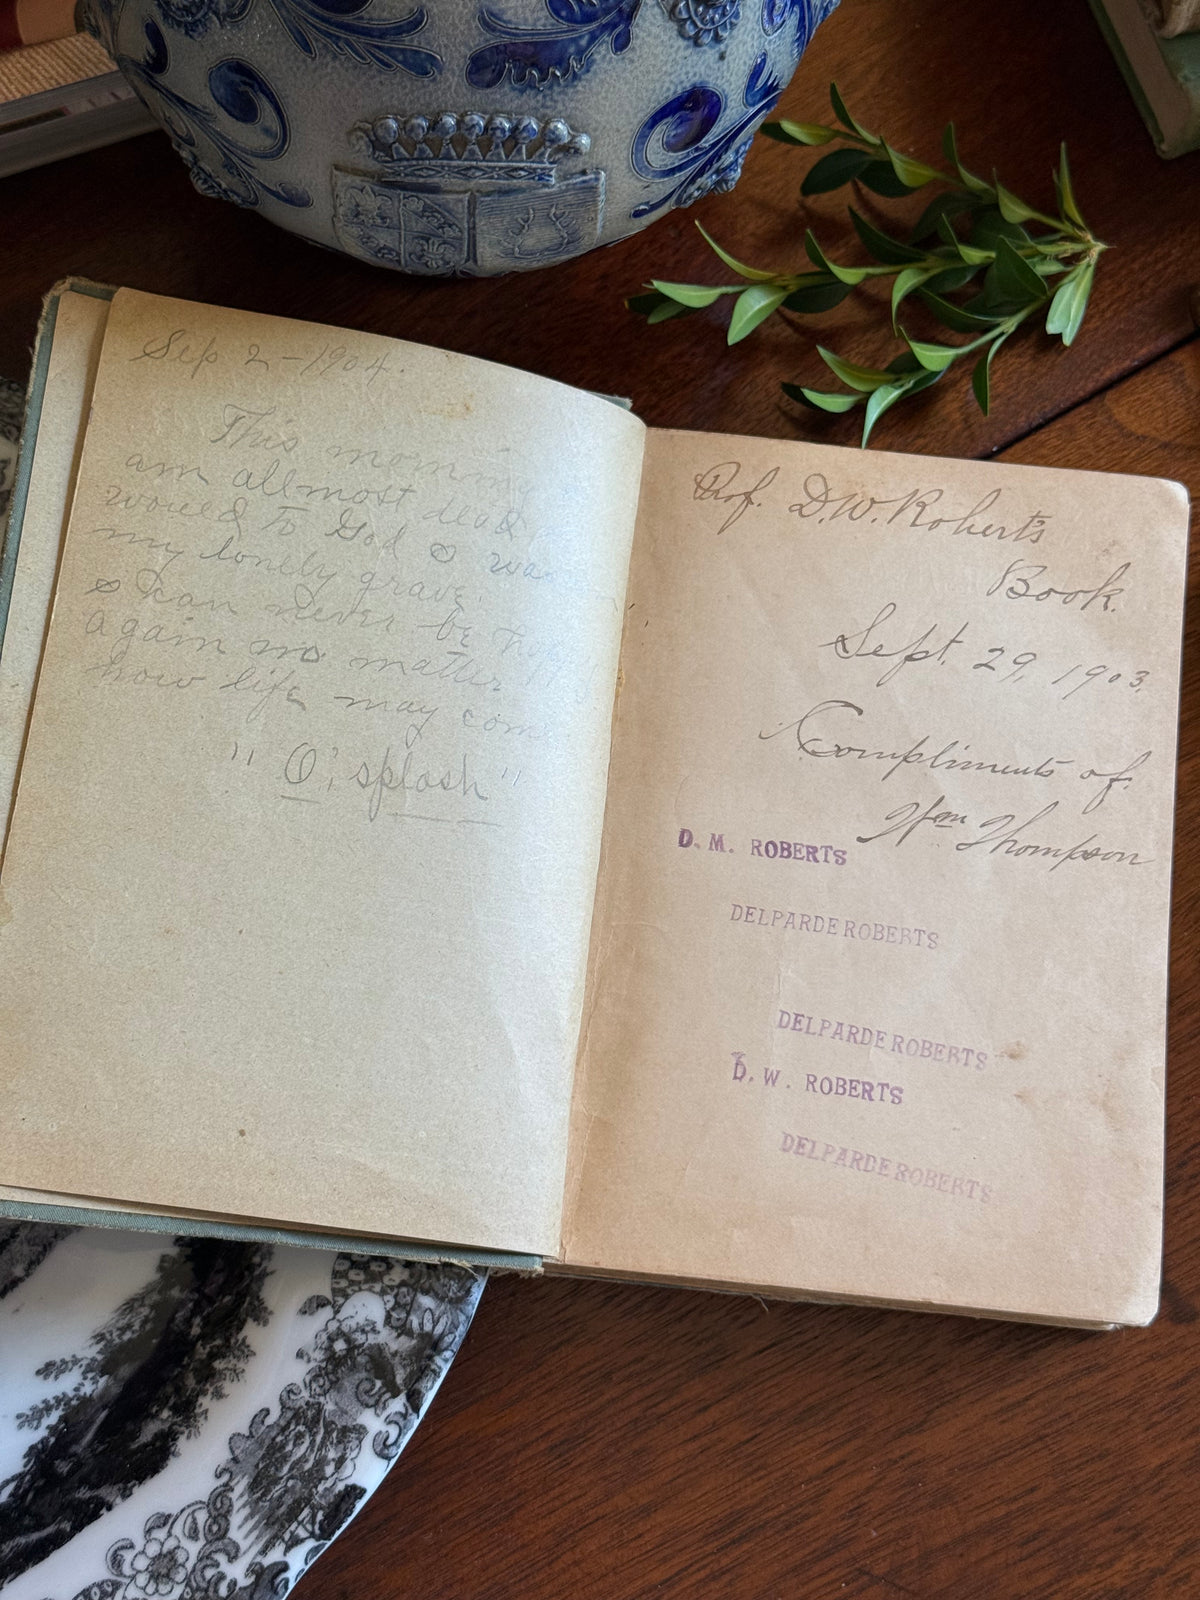 Sep 2 - 1904.
This morning
am allmost dead
would to God I was
my lonely grave.
I can never be happy
again no matter
how life may com
" O! splash "
Prof. D.W. Roberts
Book.
Sept. 29, 1903.
Compliments of
Wm Thompson
D. M. ROBERTS
DELPARDE ROBERTS
DELPARDE ROBERTS
D. W. ROBERTS
DELPARDE ROBERTS